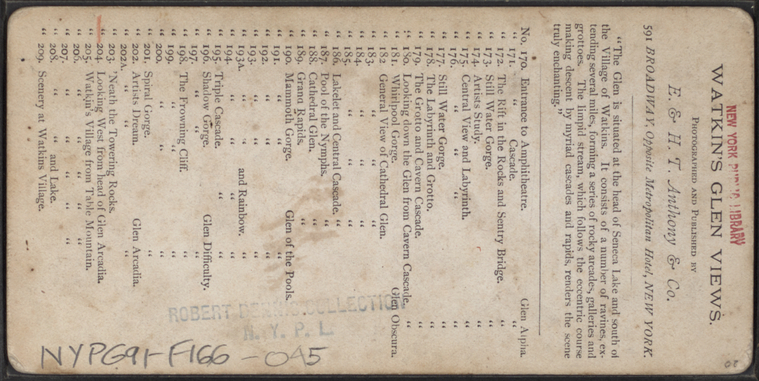 NEW YORK PUBLIC LIBRARY
WATKIN'S GLEN VIEWS.
PHOTOGRAPHED AND PUBLISHED BY
E. & H. T. Anthony & Co.
591 BROADWAY, Opposite Metropolitan Hotel, NEW YORK.
"The Glen is situated at the head of Seneca Lake and south of
the Village of Watkins. It consists of a number of ravines, ex-
tending several miles, forming a series of rocky arcades, galleries and
grottoes. The limpid stream, which follows the eccentric course
making descent by myriad cascades and rapids, renders the scene
truly enchanting."
No. 170. Entrance to Amphitheatre. Glen Alpha.
" 171. " Cascade. "
" 172. The Rift in the Rocks and Sentry Bridge. "
" 173. Still Water Gorge. "
" 174. Artists Study. "
" 175. Central View and Labyrinth. "
" 176. " " "
" 177. Still Water Gorge. "
" 178. The Labyrinth and Grotto. "
" 179. The Grotto and Cavern Cascade. "
" 180. Looking down the Glen from Cavern Cascade. "
" 181. Whirlpool Gorge. Glen Obscura.
" 182 General View of Cathedral Glen. "
" 183. " " "
" 184. " " "
" 185. " " "
" 186. Lakelet and Central Cascade. "
" 187. Pool of the Nymphs. "
" 188. Cathedral Glen. "
" 189. Grand Rapids. "
" 190. Mammoth Gorge. Glen of the Pools.
" 191. " " "
" 192. " " "
" 193. " " "
" 193A. " " and Rainbow. "
" 194. " " "
" 195. Triple Cascade. "
" 196. Shadow Gorge. Glen Difficulty.
" 197. " " "
" 198. The Frowning Cliff. "
" 199. " " "
" 200. " " "
" 201. Spiral Gorge. "
" 202. Artists Dream. Glen Arcadia.
" 202A. " " "
" 203. 'Neath the Towering Rocks. "
" 204. Looking West from head of Glen Arcadia.
" 205. Watkin's Village from Table Mountain.
" 206. " " " "
" 207. " " " "
" 208. " " and Lake. "
" 209. Scenery at Watkins Village.
ROBERT DENNIS COLLECTION
N. Y. P. L.
NYPG91-F166-045